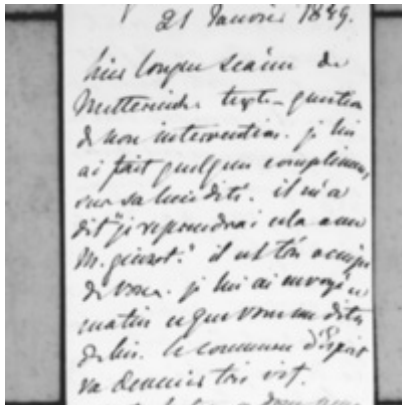 21 Janvier 1849.
hier longue séance de
Metternich. texte - question
de non intervention. je lui
ai fait quelques complimens
sur sa lucidité. il m'a
dit "je répondrai cela à
M. guizot." il est très occupé
de vous. je lui ai envoyé ce
matin ce que vous me dites
de lui. le commerce d'esprit
va devenir très vif.